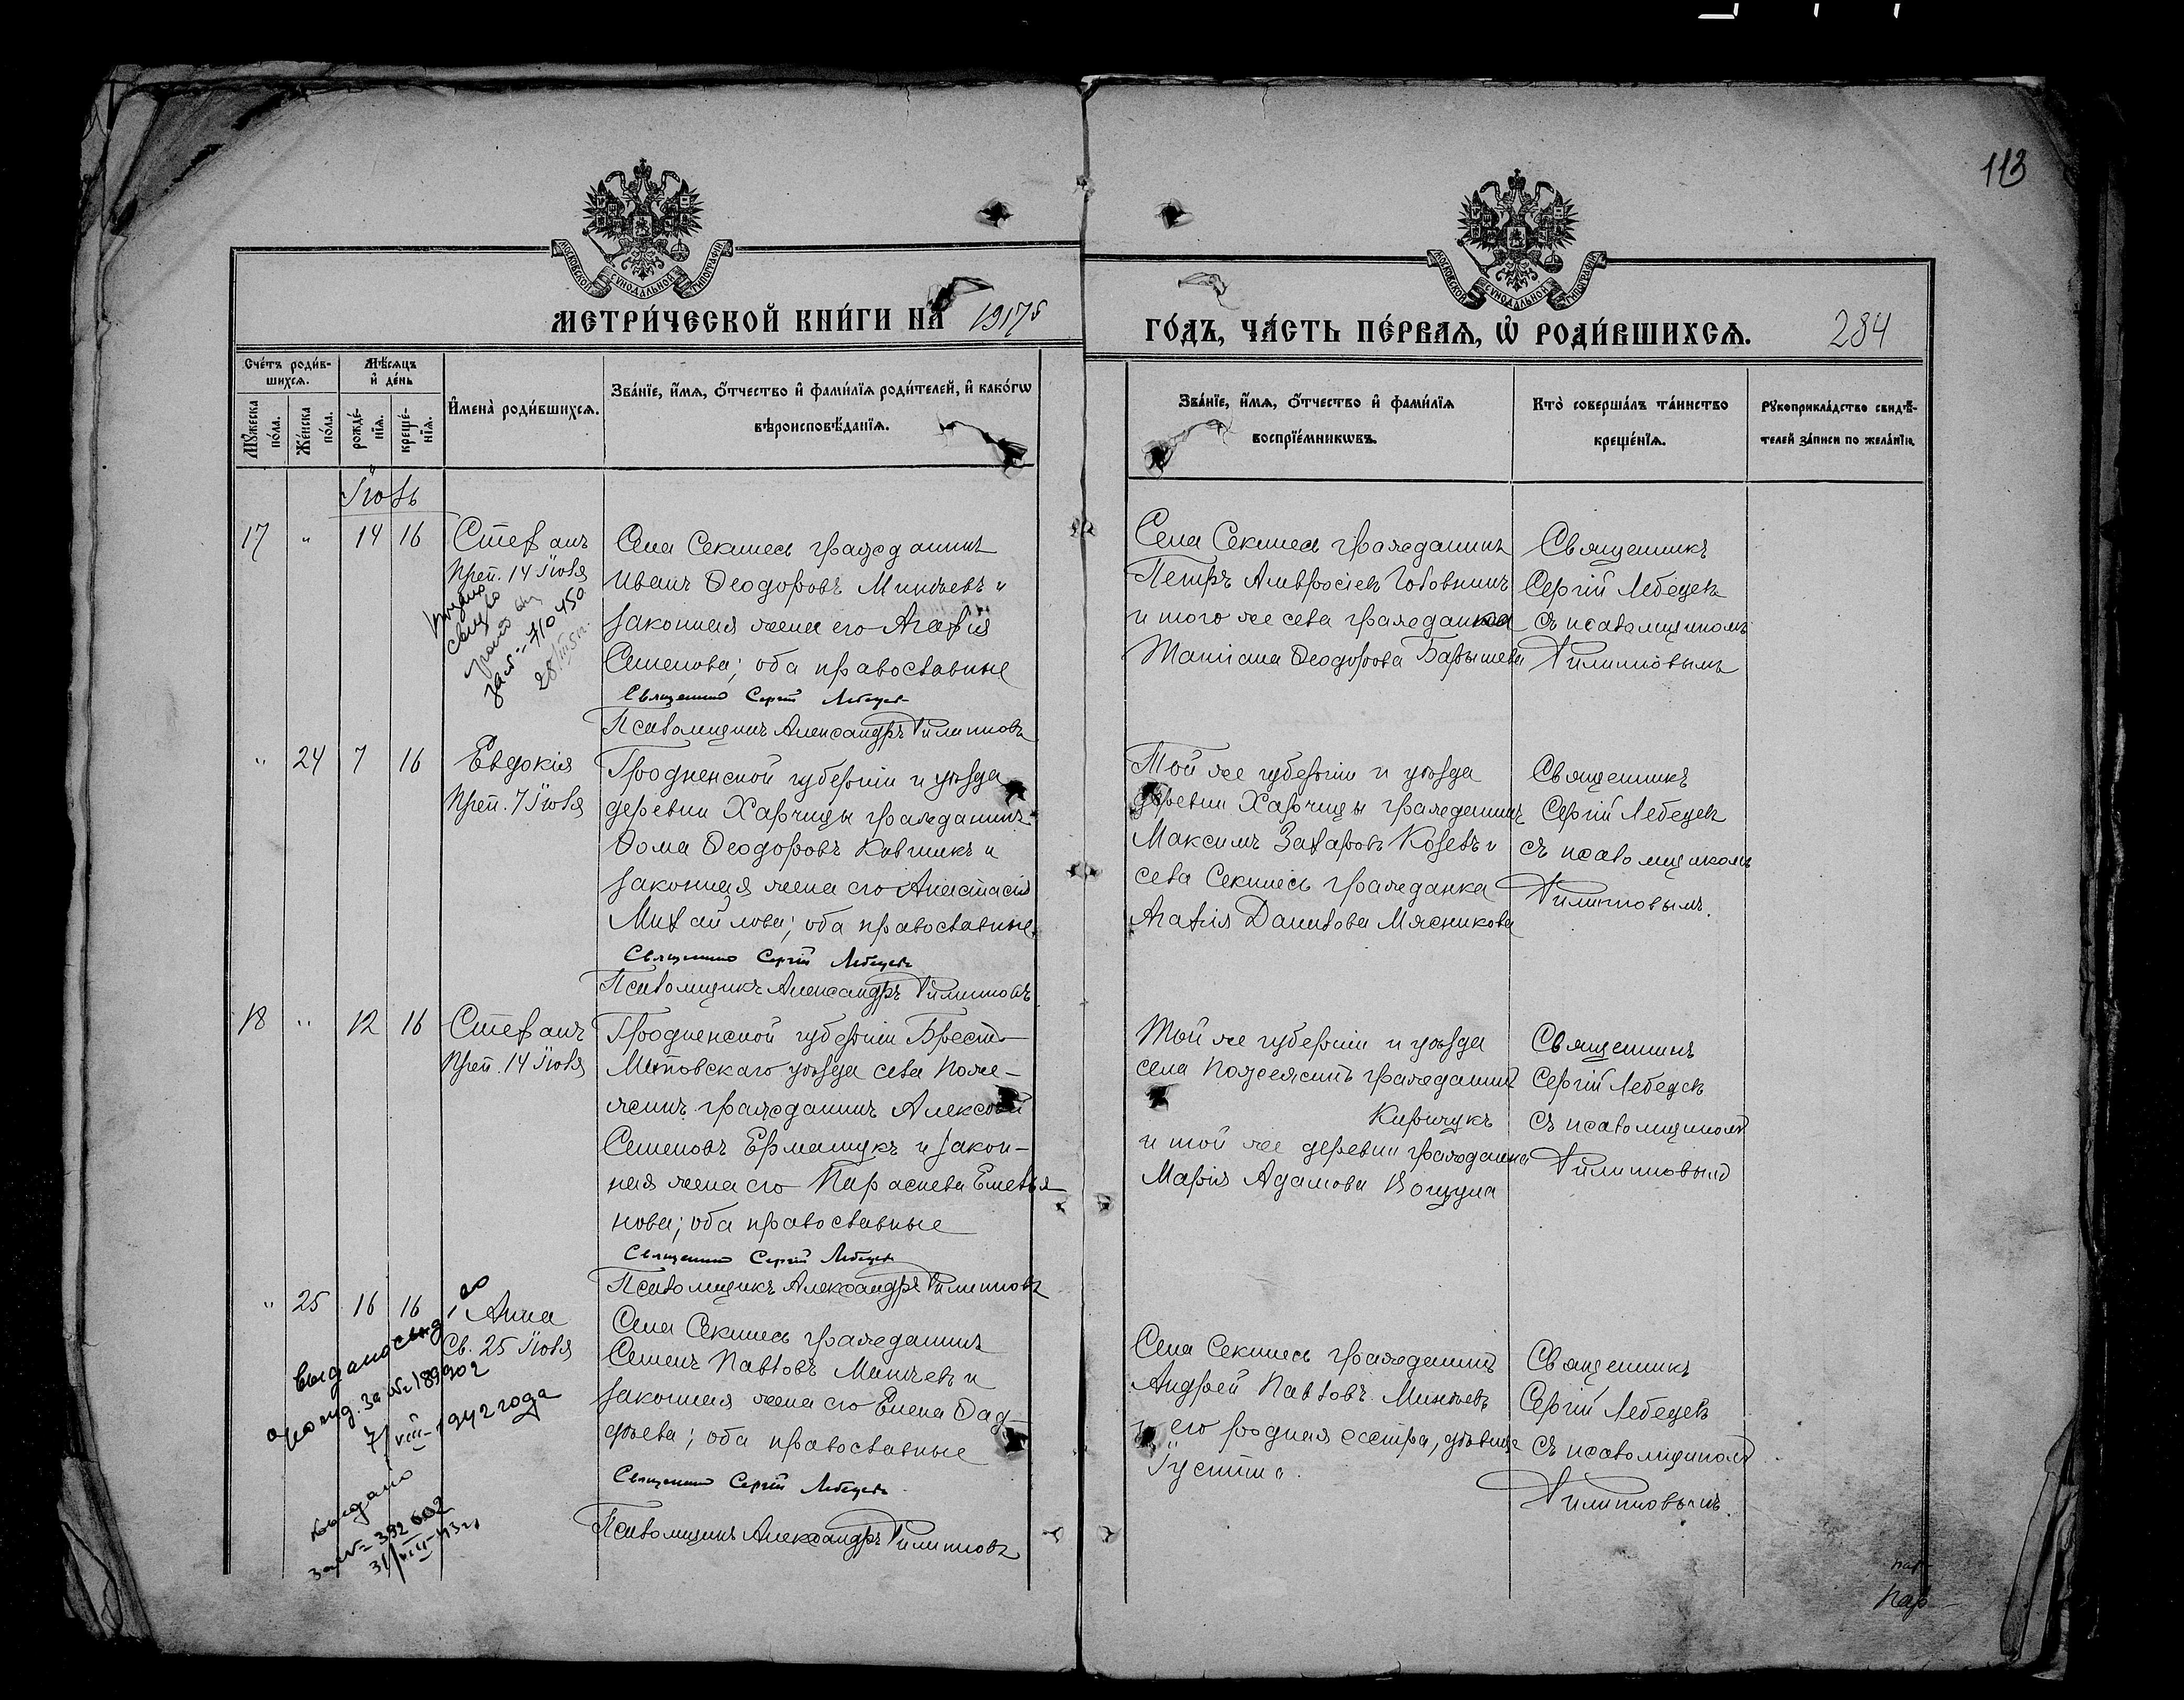 113
МОСКОВСКОЙ СѴНОДАЛЬНОЙ ТИПОГРАФІИ
МОСКОВСКОЙ СѴНОДАЛЬНОЙ ТИПОГРАФІИ
МЕТРИ́ЧЕСКОЙ КНИ́ГИ НА 1917
ГО́ДЪ, ЧА́СТЬ ПЕ́РВАѦ, Ѡ҆ РОДИ́ВШИХСѦ. 284
Сче́тъ роди́в-
шихсѧ.
Мѣ́сѧцъ
и҆ де́нь
Мꙋ́жеска
по́ла.
Же́нска
по́ла.
рожде́-
нїѧ.
креще́-
нїѧ.
И҆мена̀ роди́вшихсѧ.
Зва́нїе, и҆́мѧ, ѻ҆́тчество и҆ фами́лїѧ роди́телей, и҆ како́гѡ
вѣроисповѣ́данїѧ.
Зва́нїе, и҆́мѧ, ѻ҆́тчество и҆ фами́лїѧ
воспрїе́мникѡвъ.
Кто̀ соверша́лъ та́инство
креще́нїѧ.
Рꙋкоприкла́дство свидѣ́-
телей за́писи по жела́нїю.
Іюль
17 " 14 16
Стефанъ
Преп. 14 Іюля
Села Секинесь гражданинъ
Иванъ Ѳеодоровъ Минѣевъ и
законная жена его Агафія
Семенова; оба православные
Священникъ Сергій Лебедевъ
Псаломщикъ Александръ Филипповъ
Села Секинесь гражданинъ
Петръ Амвросіевъ Головкинъ
и того же села гражданка
Татіана Ѳеодорова Барышева
Священникъ
Сергій Лебедевъ
съ псаломщикомъ
Филипповымъ
выдано
свид-во
710450
" 24 7 16
Евдокія
Преп. 7 Іюля
Гродненской губерніи и уѣзда
деревни Харчицы гражданинъ
Ѳома Ѳеодоровъ и
законная жена его Анастасія
Михайлова; оба православные
Священникъ Сергій Лебедевъ
Псаломщикъ Александръ Филипповъ
Той же губерніи и уѣзда
деревни Харчицы гражданинъ
Максимъ Захаровъ Козелъ и
села Секинесь гражданка
Агафія Данилова Мясникова
Священникъ
Сергій Лебедевъ
съ псаломщикомъ
Филипповымъ.
18 " 12 16
Стефанъ
Преп. 14 Іюля
Гродненской губерніи Брестъ-
Литовскаго уѣзда села Поже-
жинъ гражданинъ Алексѣй
Семеновъ Ермашукъ и закон-
ная жена его Параскева Емелья-
нова; оба православные
Священникъ Сергій Лебедевъ
Псаломщикъ Александръ Филипповъ
Той же губерніи и уѣзда
села гражданинъ
Киричукъ
и той же деревни гражданка
Марія Адамова
Священникъ
Сергій Лебедевъ
съ псаломщикомъ
Филипповымъ
" 25 16 16
Анна
Св. 25 Іюля
Села Секинесь гражданинъ
Семенъ Павловъ Минѣевъ и
законная жена его Елена Ѳад-
дѣева; оба православные
Священникъ Сергій Лебедевъ
Псаломщикъ Александръ Филипповъ
Села Секинесь гражданинъ
Андрей Павловъ Минѣевъ
и его родная сестра, дѣвица
Іустина.
Священникъ
Сергій Лебедевъ
съ псаломщикомъ
Филипповымъ.
выдано свид
за № 189902
7/VIII-1942 года
выдано
за №=392602